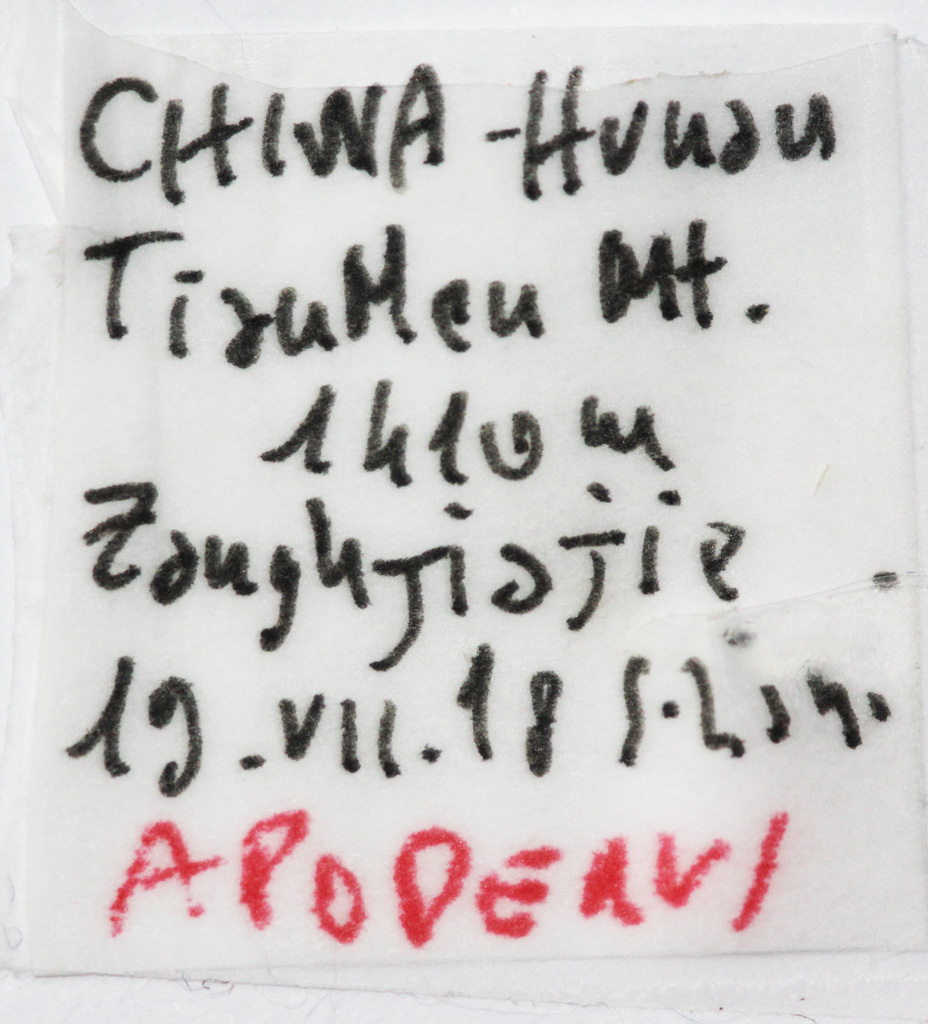 CHINA - Hunan
TianMen Mt.
1410 m
Zanghjiajie
19.VII.18
APODERUS